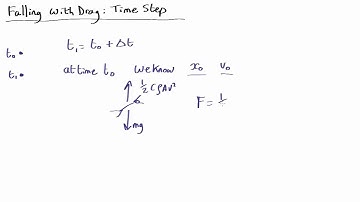 Falling With Drag: Time Step
t₀ • t₁ = t₀ + Δt
t₁ • at time t₀ we know x₀ v₀
½ CρAv²
F = ½
mg